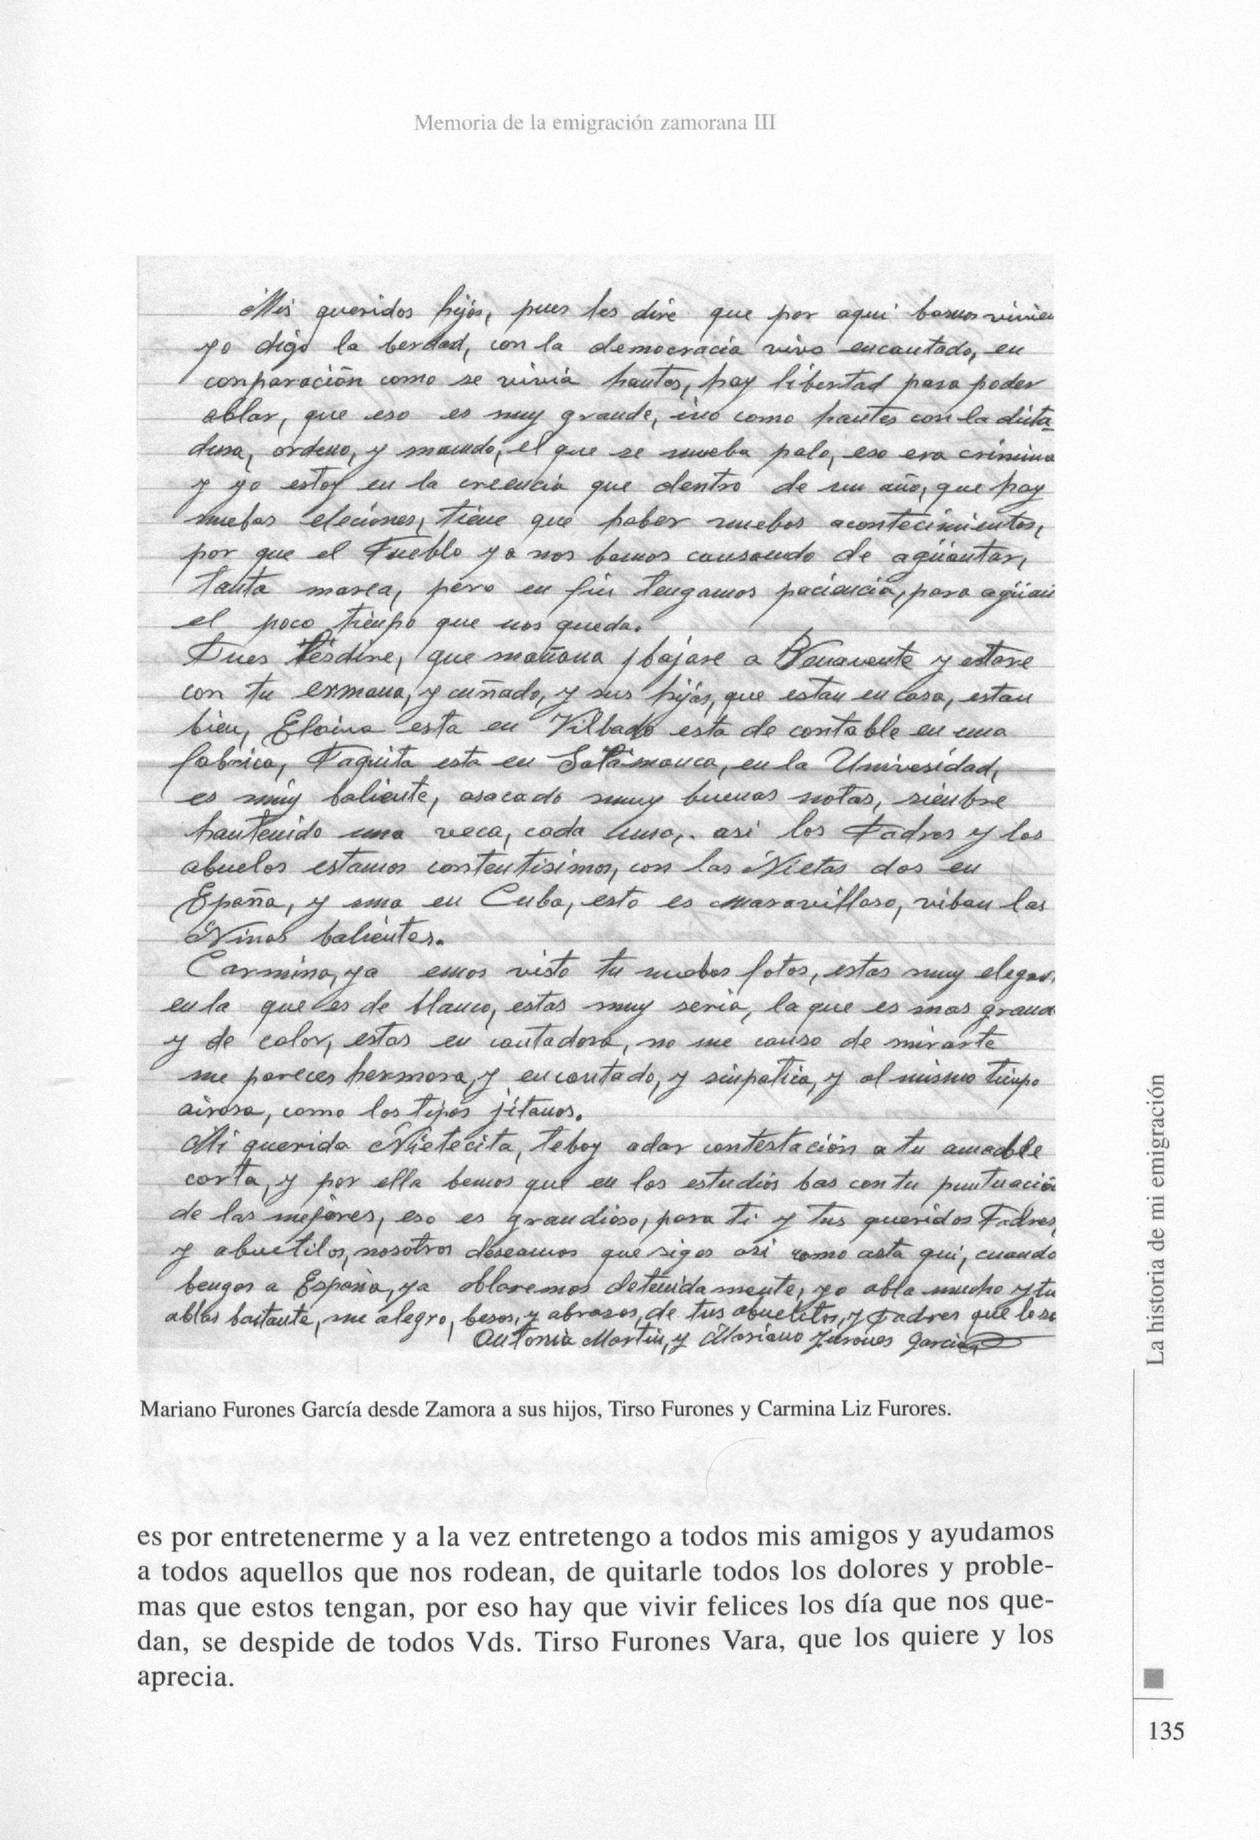 Memoria de la emigración zamorana III
Mis queridos hijos, pues les dire que por aqui bamos vivien
yo digo la berdad, con la democracia vivo encantado, en
conparación como se vivia hantes, hay libertad para poder
ablar, que eso es muy grande, ino como hantes con la dicta-
dura, ordeno, y mando, el que se mueba palo, eso era crimina
y yo estoy en la creencia que dentro de un año, que hay
nuebas eleciones, tiene que haber nuebos acontecimientos,
por que el Pueblo ya nos bamos cansando de agüantar,
tanta marea, pero en fin tengamos paciancia, para agüan
el poco tienpo que nos queda.
Pues lesdire, que mañana bajare a Benavente y estare
con tu ermana, y cuñado, y sus hijas, que estan en casa, estan
bien, Eloina esta en Vilbado esta de contable en una
fabrica, Paquita esta en Salamanca, en la Univesidad,
es muy baliente, asacado muy buenas notas, sienbre
hantenido una veca, cada una, asi los Padres y los
abuelos estamos contentisimos, con las Nietas dos en
España, y una en Cuba, esto es maravilloso, viban las
Ninas balientes.
Carmina, ya emos visto tu nuebas fotos, estas muy elegan
en la que es de blanco, estas muy seria, la que es mas grand
y de color, estas en cantadora, no me canso de mirarte
me pareces hermosa, y encantado, y sinpatica, y al mismo tienpo
airosa, como los tipos jitanos.
Mi querida Nietecita, teboy adar contestación a tu amable
carta, y por ella bemos que en los estudios bas con tu puntuación
de las mejores, eso es grandioso, para ti y tus queridos Padres,
y abuelitos, nosotros deseamos que sigas asi como asta qui, cuando
bengas a España, ya ablaremos detenidamente, yo abla mucho y tu
ablas bastante, me alegro, besos, y abrasos, de tus abuelitos, y Padres que los
Antonia Martin, y Mariano Furones Garcia
Mariano Furones García desde Zamora a sus hijos, Tirso Furones y Carmina Liz Furores.
es por entretenerme y a la vez entretengo a todos mis amigos y ayudamos
a todos aquellos que nos rodean, de quitarle todos los dolores y proble-
mas que estos tengan, por eso hay que vivir felices los día que nos que-
dan, se despide de todos Vds. Tirso Furones Vara, que los quiere y los
aprecia.
La historia de mi emigración
135